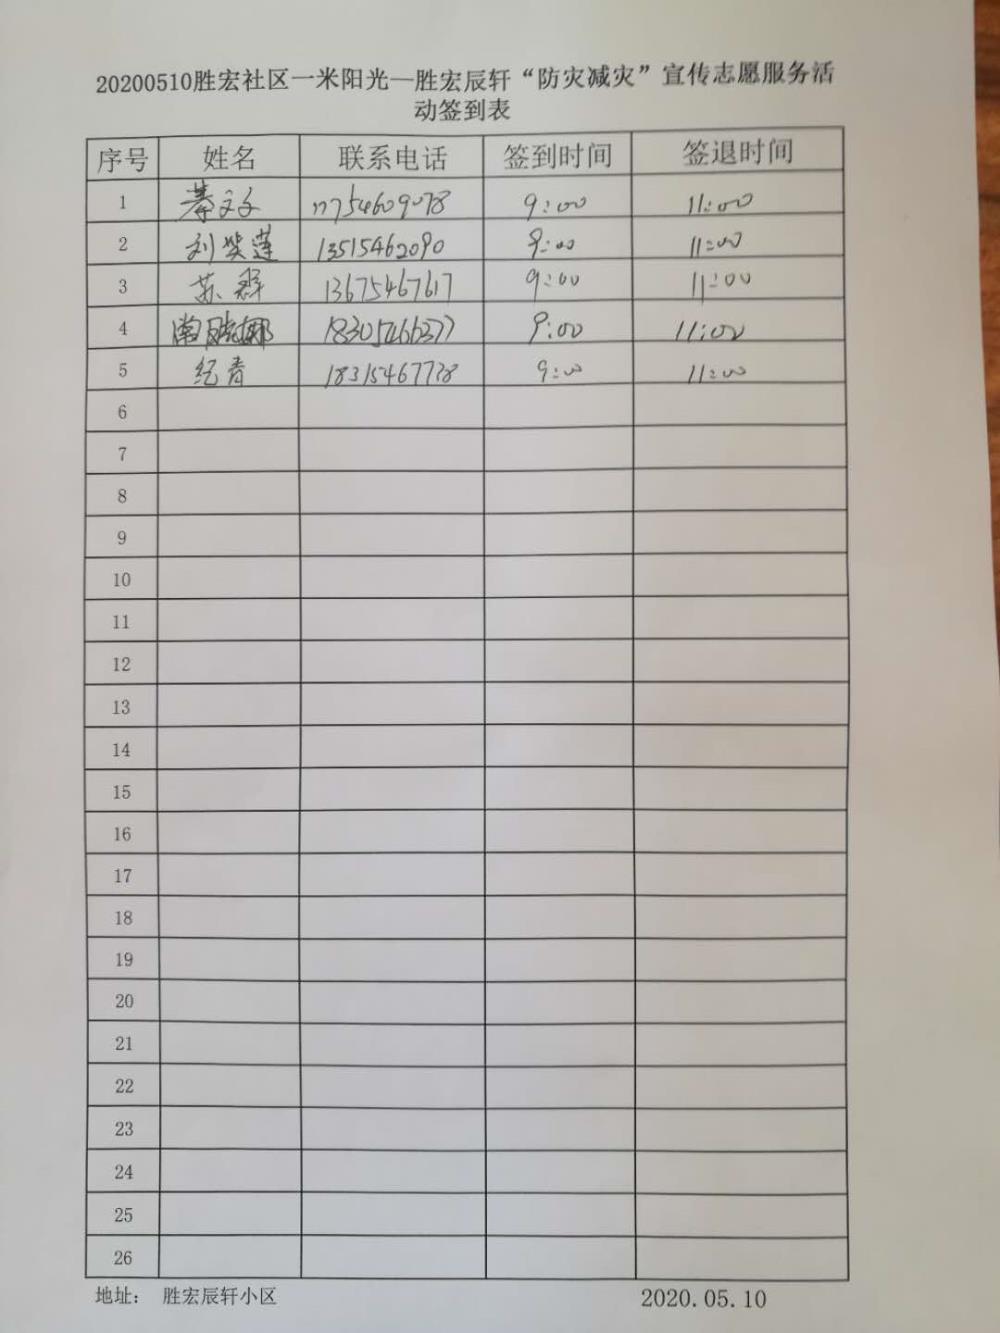 20200510胜宏社区一米阳光—胜宏辰轩“防灾减灾”宣传志愿服务活
动签到表
序号 姓名 联系电话 签到时间 签退时间
1 17754609078 9:00 11:00
2 刘 莲 13515462090 9:00 11:00
3 苏群 13675467617 9:00 11:00
4 18305466377 9:00 11:00
5 纪青 18315467728 9:00 11:00
6
7
8
9
10
11
12
13
14
15
16
17
18
19
20
21
22
23
24
25
26
地址: 胜宏辰轩小区 2020.05.10